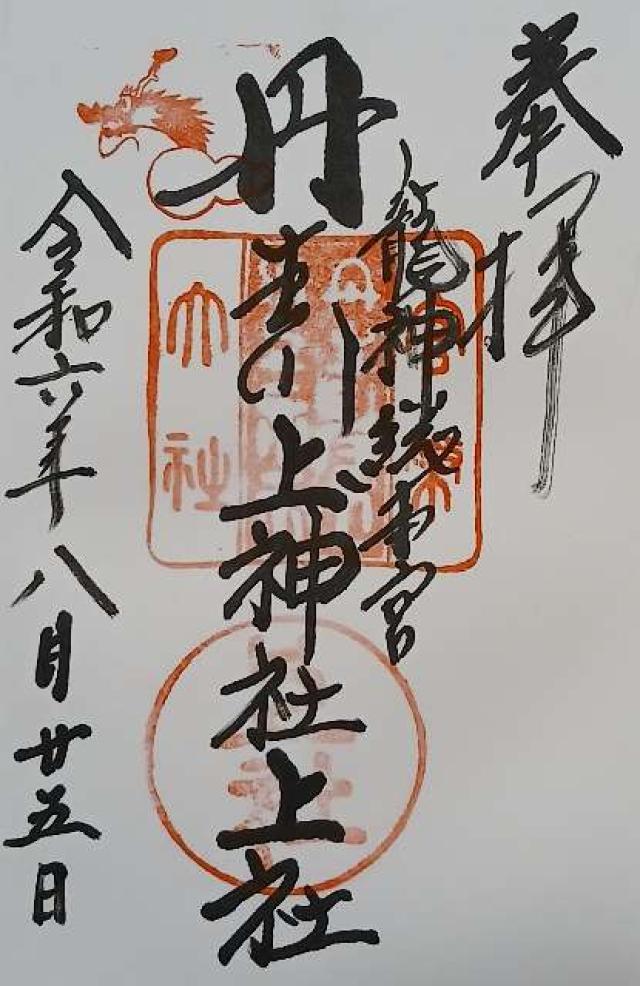 奉拝
龍神総本宮
丹生川上神社上社
令和六年八月廿五日
大社
上社